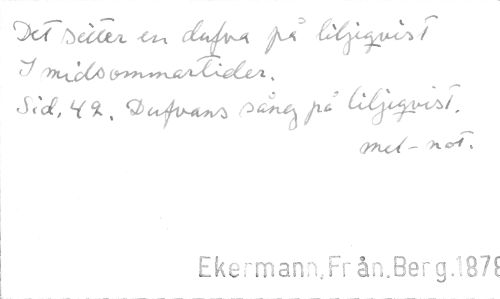 Det sitter en dufva på liljeqvist
I midsommartider.
Sid. 42. Dufvans sång på liljeqvist.
mel-not.
Ekermann, Från. Berg. 1878